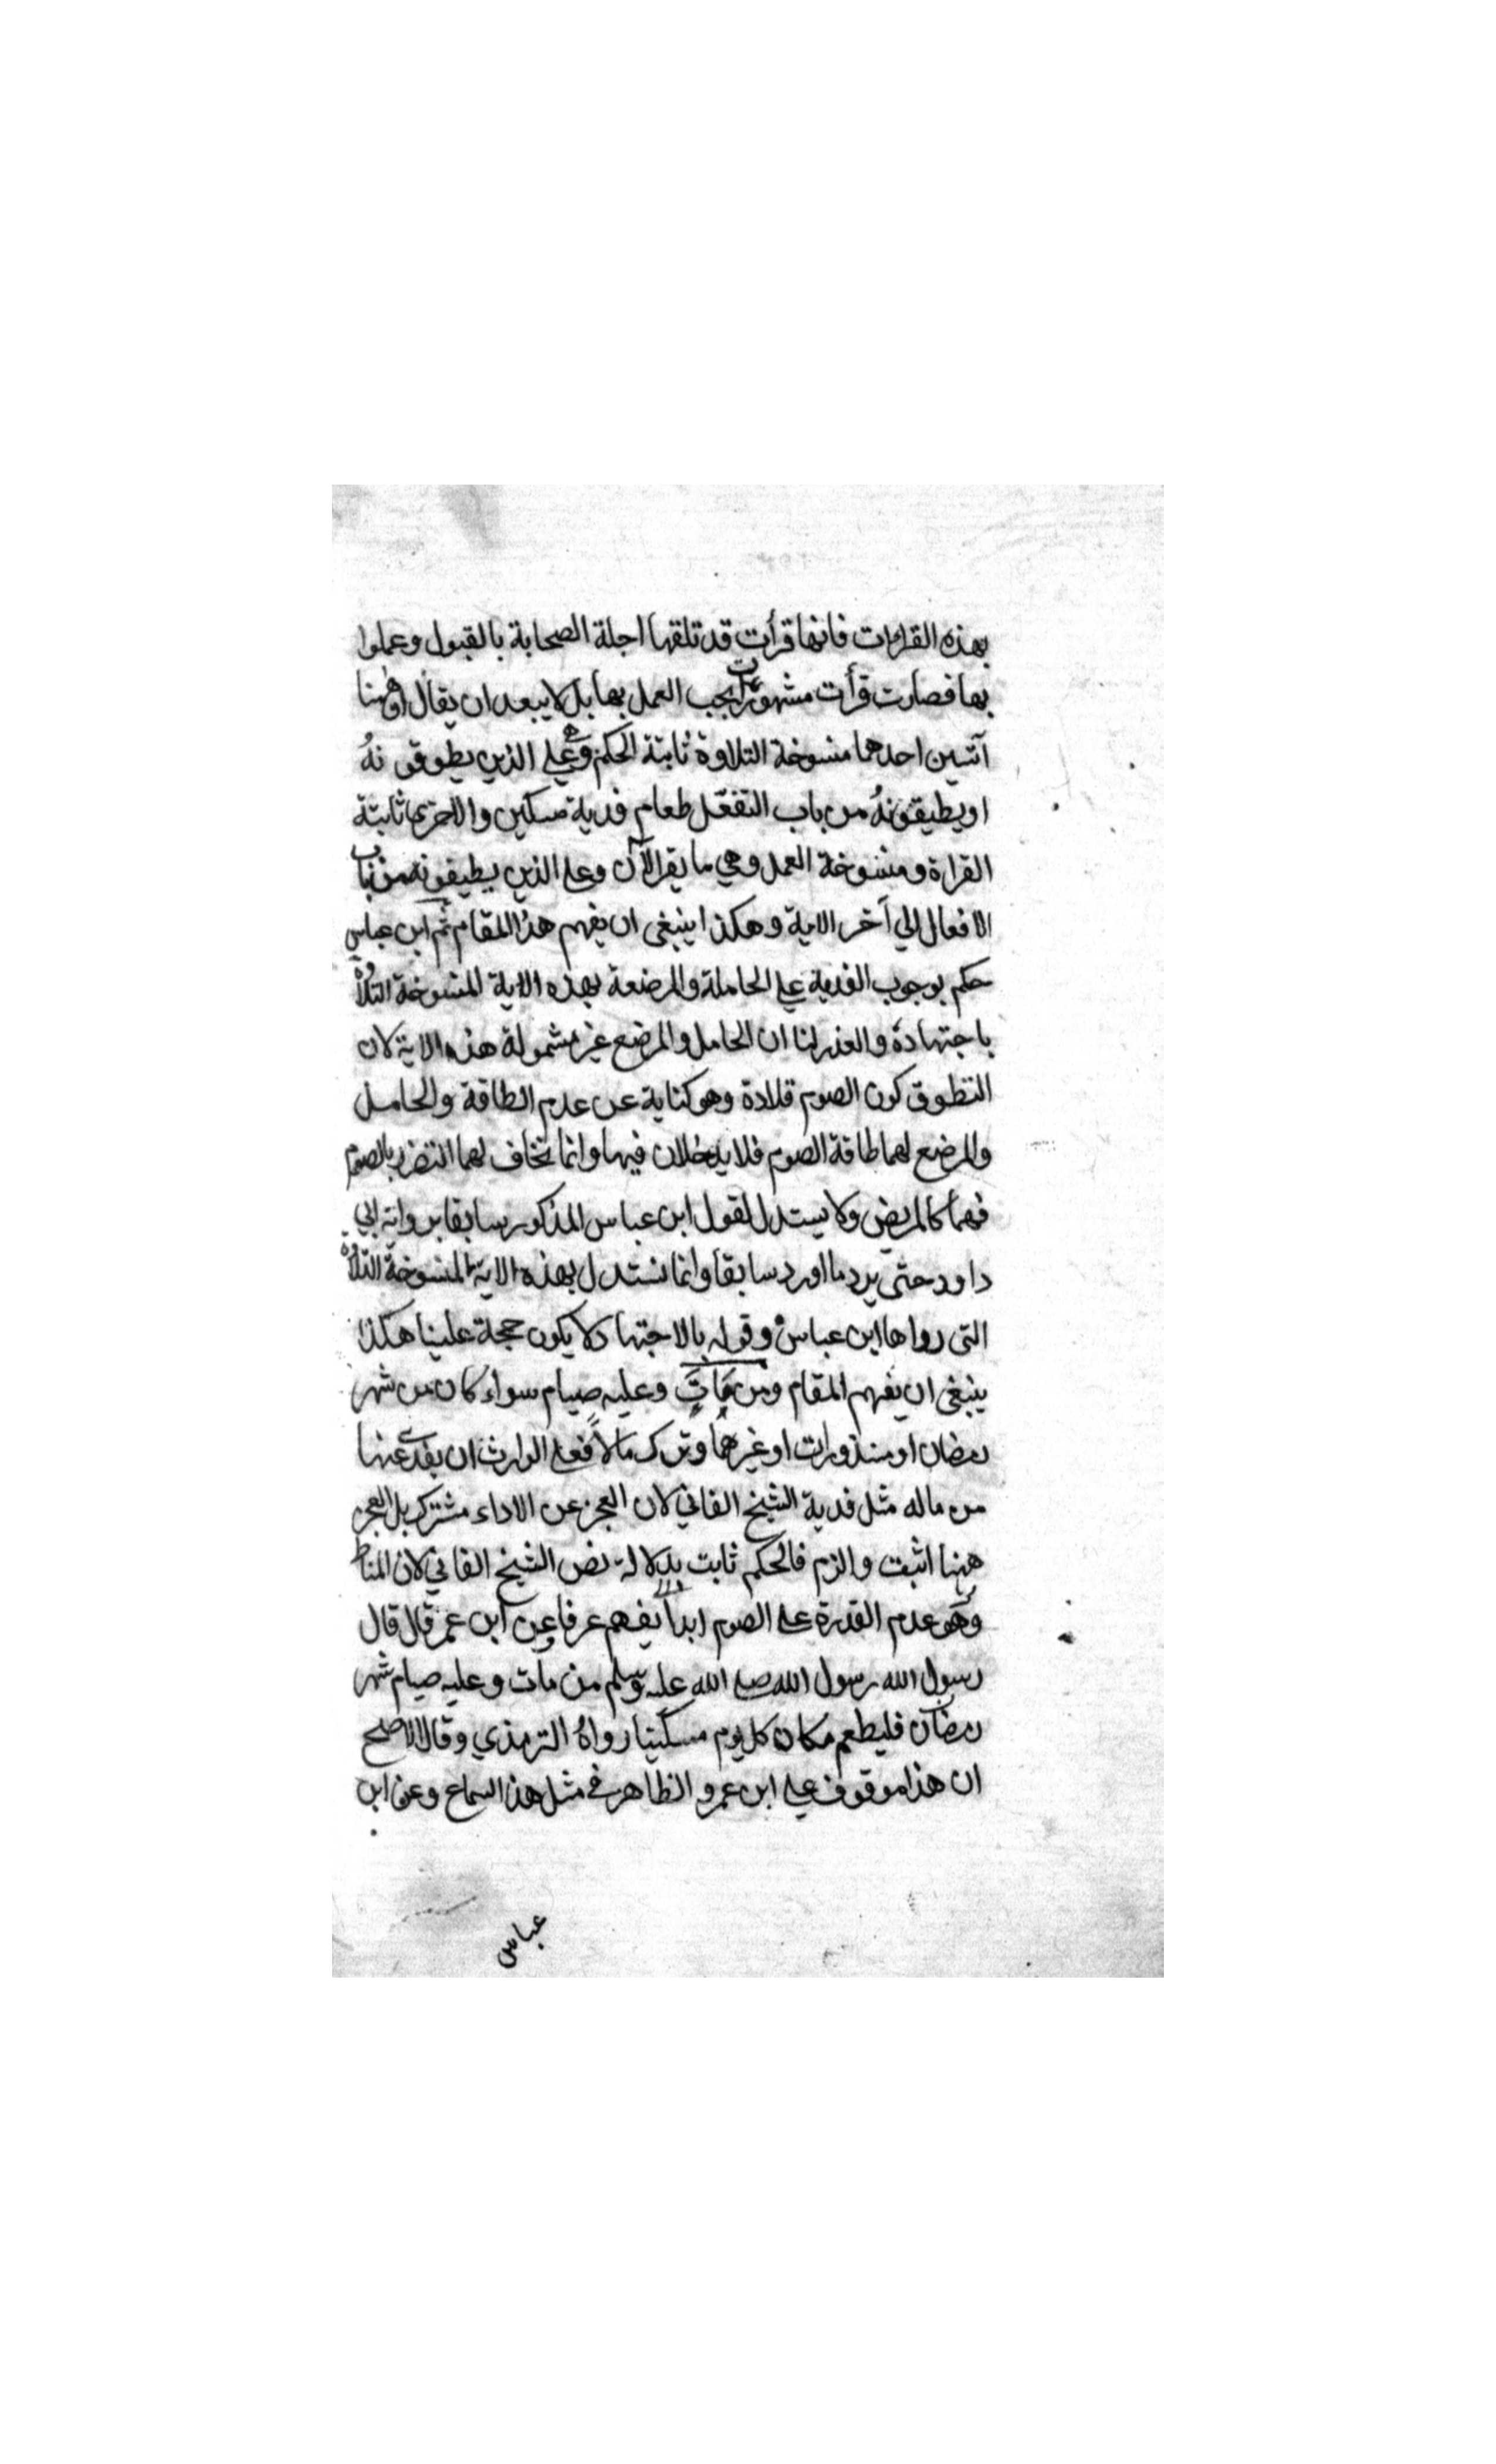 بهذه القراءات فانها قرأت قد تلقها اجلة الصحابة بالقبول وعملوا
بها فصارت قرأت مشهورات يجب العمل بها بل لا يبعد ان يقال ان ههنا
آتيين احدهما منسوخة التلاوة ثابتة الحكم وهي وعلي الذين يطوقونهُ
او يطيقونهُ من باب التفعّل طعام فدية مسكين والاخرى ثابتة
القراة ومنسوخة العمل وهي ما يقرا الآن وعلى الذين يطيقونه من باب
الافعال الي آخر الاية وهكذا ينبغى ان يفهم هذا المقام ثم ابن عباس
حكم بوجوب الفدية علي الحاملة والمرضعة بهذه الاية المنسوخة التلاوة
باجتهاده والعذر لنا ان الحامل والمرضع غير مشمولة هذه الاية لان
التطوق كون الصوم قلادة وهو كناية عن عدم الطاقة والحامل
والمرضع لهما طاقة الصوم فلا يدخلان فيها وانما يخاف لهما التضرر بالصوم
فهما كالمريض ولا يستدل لقول ابن عباس المذكور سابقا برواية ابي
داود حتى يرد ما اورد سابقا وانما نستدل بهذه الاية المنسوخة التلاوة
التى رواها ابن عباس وقوله بالاجتهاد لا يكون حجة علينا هكذا
ينبغى ان يفهم المقام ومن مات وعليه صيام سواء كان من شهر
رمضان او منذورات او غيرهما وترك مالاً فعلى الوارث ان يفدى عنها
من ماله مثل فدية الشيخ الفاني لان العجز عن الاداء مشترك بل العجز
ههنا اثبت والزم فالحكم ثابت بدلالة نص الشيخ الفاني لان المناط
وهو عدم القدرة على الصوم ابداً يفهم عرفا وعن ابن عمر قال قال
رسول الله رسول الله صلى الله عليه وسلم من مات وعليه صيام شهر
رمضان فليطعم مكان كل يوم مسكينا رواهُ الترمذي وقال الاصح
ان هذا موقوف علي ابن عمر والظاهر في مثل هذا السماع وعن ابن
عباس